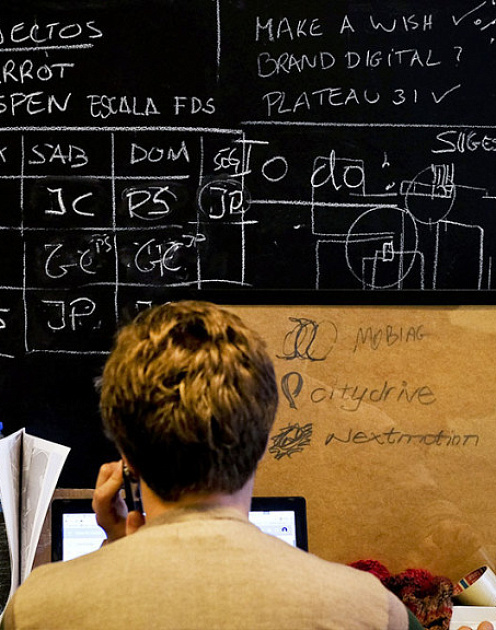 JECTOS
RROT
SPEN ESCALA FDS
MAKE A WISH ✓
BRAND DIGITAL ?
PLATEAU 31 ✓
SAB DOM SEG
JC PS JP
GC PS GC JP
JP
To do
SUGES
MOBIAG
citydrive
Nextmotion